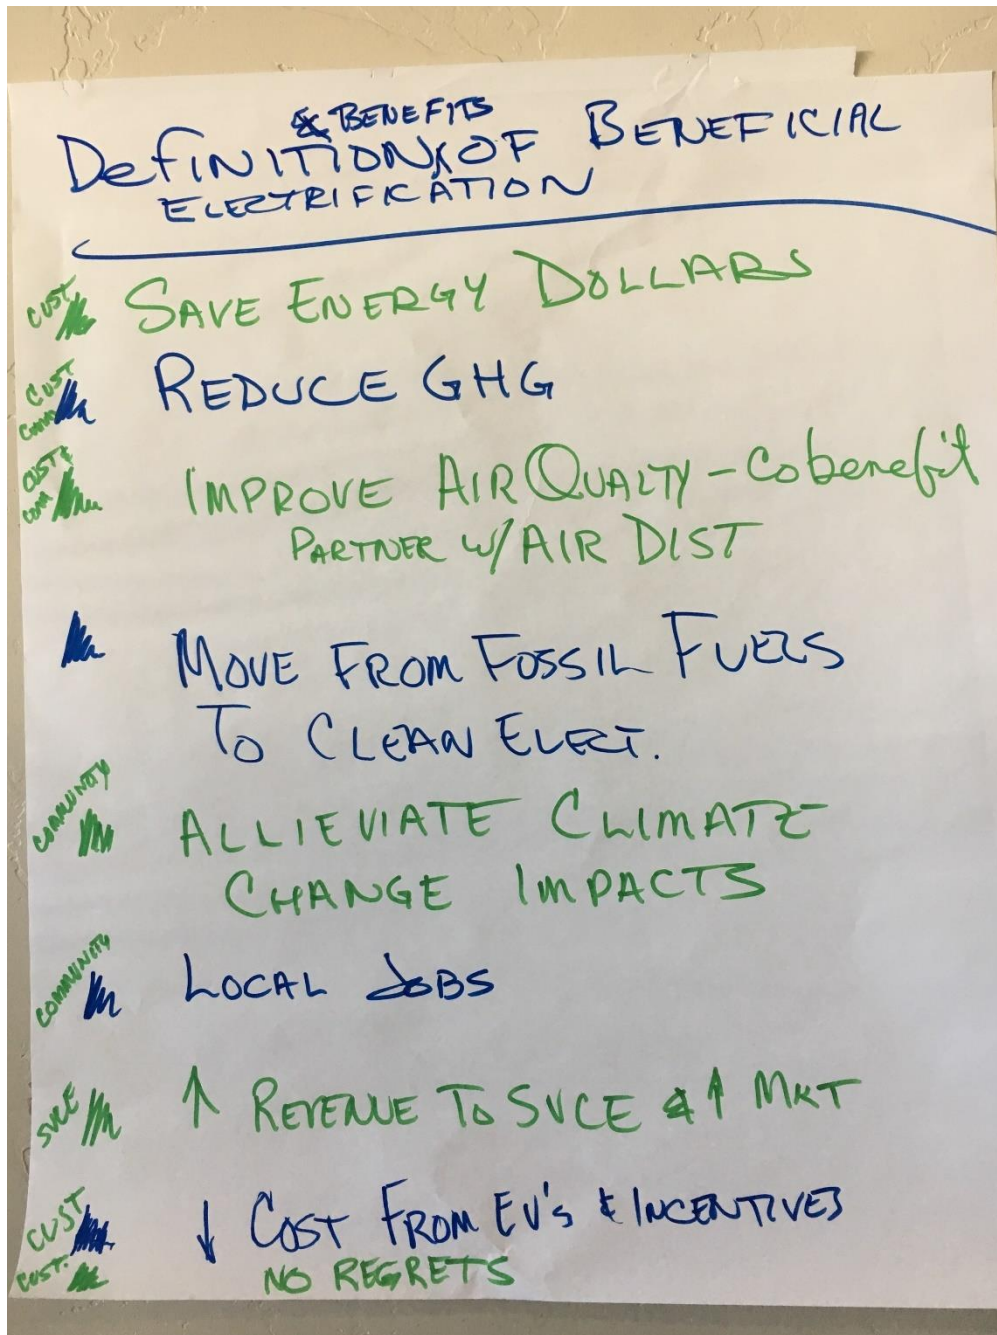 & BENEFITS
DEFINITION OF BENEFICIAL
ELECTRIFICATION
CUST SAVE ENERGY DOLLARS
CUST REDUCE GHG
COMM
CUST & IMPROVE AIR QUALTY - Cobenefit
COMM PARTNER W/ AIR DIST
MOVE FROM FOSSIL FUELS
TO CLEAN ELECT.
COMMUNITY ALLIEVIATE CLIMATE
CHANGE IMPACTS
COMMUNITY LOCAL JOBS
SVCE ↑ REVENUE TO SVCE & ↑ MKT
CUST ↓ COST FROM EV's & INCENTIVES
CUST. NO REGRETS